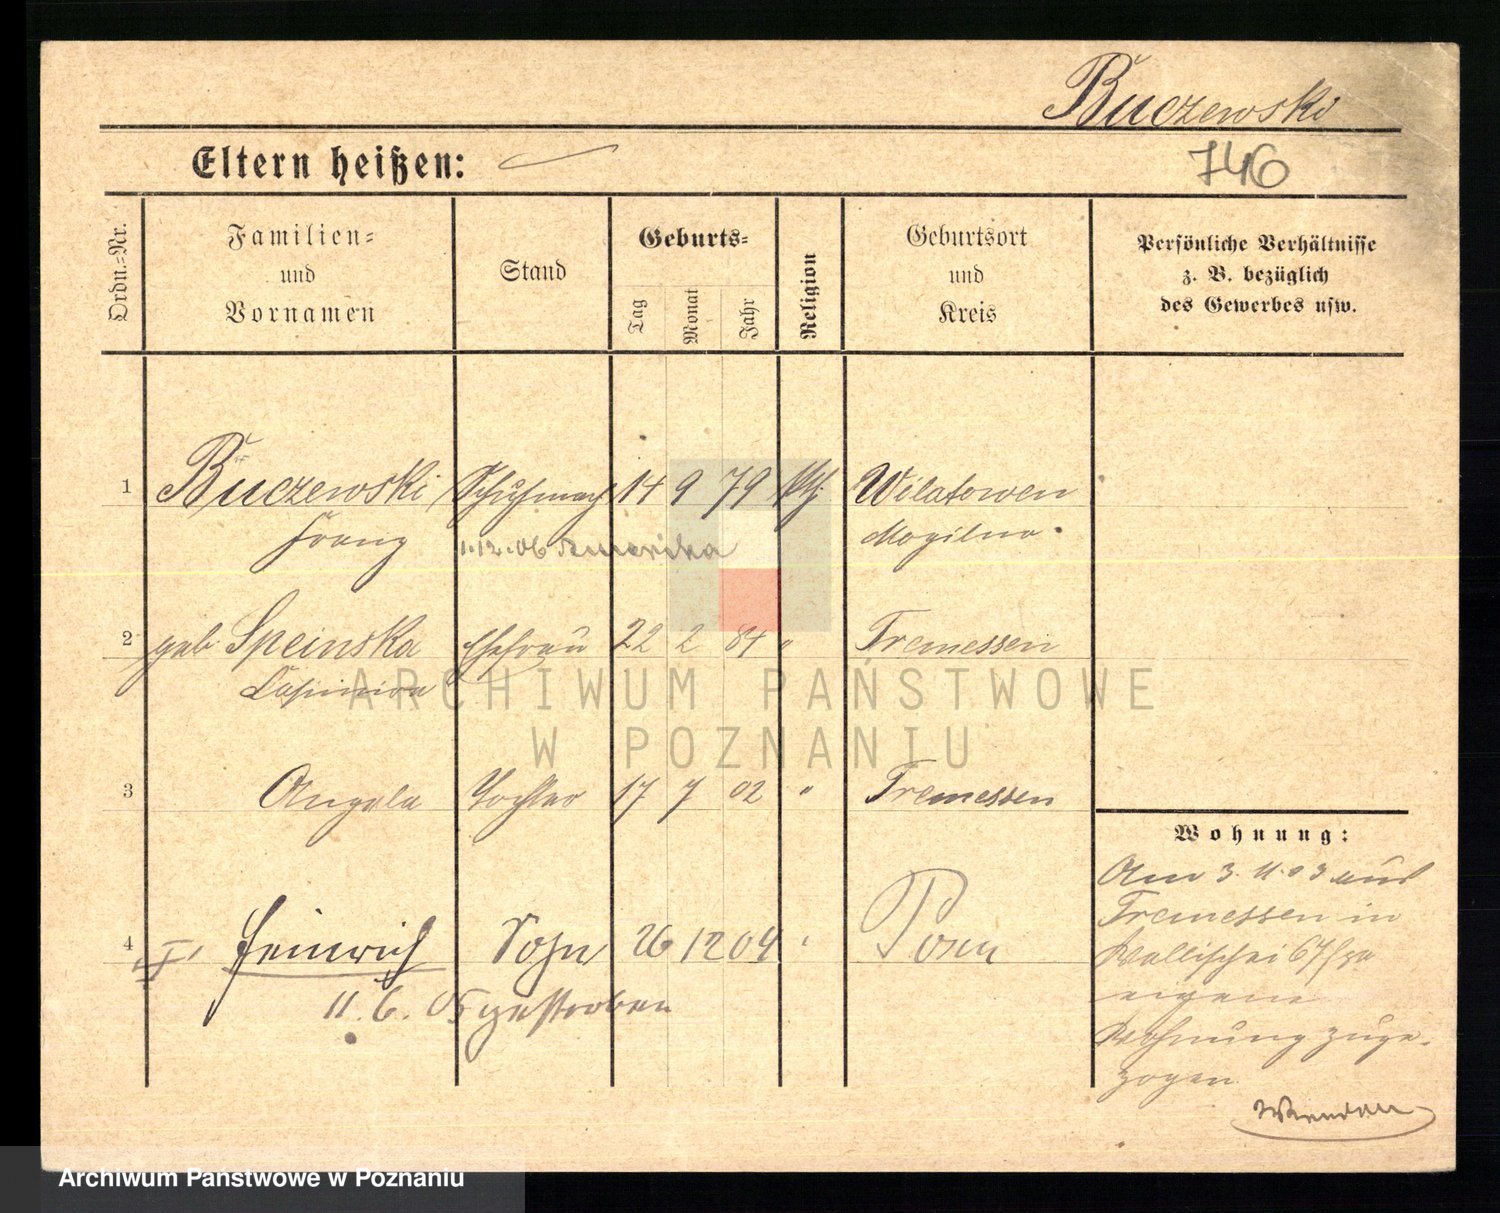 Buczewski
Eltern heißen:
746
Ordn.-Nr.
Familien- und Vornamen
Stand
Geburts-
Tag
Monat
Jahr
Religion
Geburtsort und Kreis
Persönliche Verhältnisse
z. B. bezüglich
des Gewerbes usw.
1 Buczewski Schuhmach 14 9 79 kth. Wilatowen
Franz Mogilno
1.12.06 Amerika
2 geb. Speinska Ehefrau 22 2 84 " Tremessen
Casimira
3 Angela Tochter 17 7 02 " Tremessen
4 Heinrich Sohn 26 12 04 " Posen
11.6.05 gestorben
Wohnung:
Am 3.11.03 aus
Tremessen in
Wallischei 67/
eigene
Wohnung zuge-
zogen
ARCHIWUM PAŃSTWOWE
W POZNANIU
Archiwum Państwowe w Poznaniu